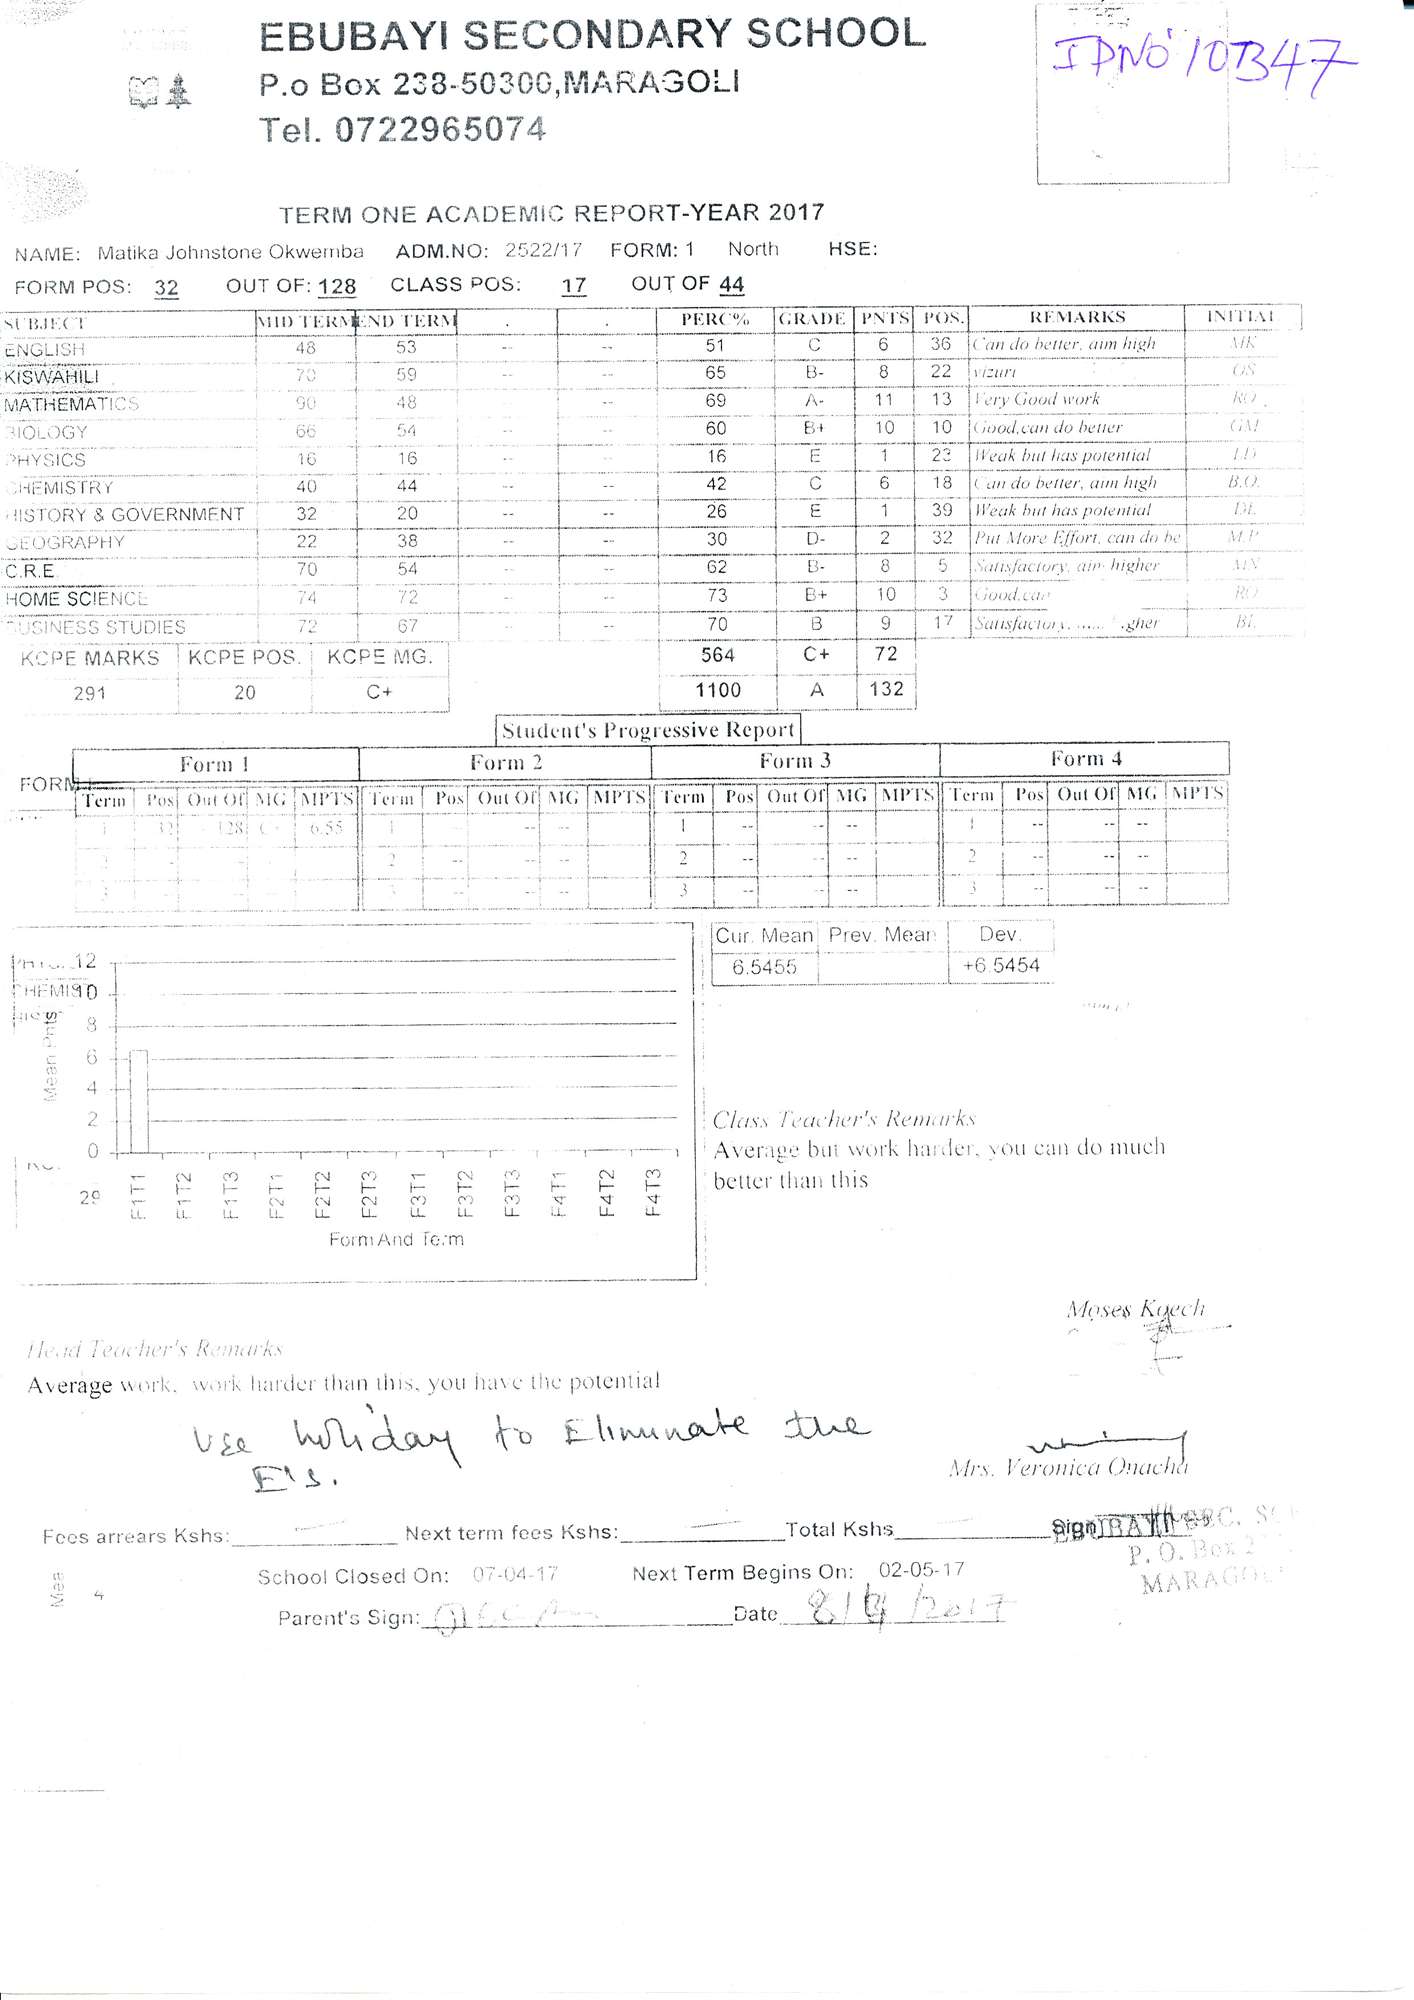 EBUBAYI SECONDARY SCHOOL
P.o Box 238-50300,MARAGOLI
Tel. 0722965074
IDNO 10B47
TERM ONE ACADEMIC REPORT-YEAR 2017
NAME: Matika Johnstone Okwemba ADM.NO: 2522/17 FORM: 1 North HSE:
FORM POS: 32 OUT OF: 128 CLASS POS: 17 OUT OF 44
SUBJECT MID TERM END TERM . . PERC% GRADE PNTS POS. REMARKS INITIAL
ENGLISH 48 53 -- -- 51 C 6 36 Can do better, aim high MK
KISWAHILI 70 59 -- -- 65 B- 8 22 vizuri OS
MATHEMATICS 90 48 -- -- 69 A- 11 13 Very Good work RO
BIOLOGY 66 54 -- -- 60 B+ 10 10 Good,can do better GM
PHYSICS 16 16 -- -- 16 E 1 23 Weak but has potential
CHEMISTRY 40 44 -- -- 42 C 6 18 Can do better, aim high B.O.
HISTORY & GOVERNMENT 32 20 -- -- 26 E 1 39 Weak but has potential DL
GEOGRAPHY 22 38 -- -- 30 D- 2 32 Put More Effort, can do be M.P
C.R.E 70 54 -- -- 62 B- 8 5 Satisfactory, aim higher MN
HOME SCIENCE 74 72 -- -- 73 B+ 10 3 Good,can RO
BUSINESS STUDIES 72 67 -- -- 70 B 9 17 Satisfactory, BL
KCPE MARKS KCPE POS. KCPE MG. 564 C+ 72
291 20 C+ 1100 A 132
Student's Progressive Report
Form 1 Form 2 Form 3 Form 4
FORM
Term Pos Out Of MG MPTS Term Pos Out Of MG MPTS Term Pos Out Of MG MPTS Term Pos Out Of MG MPTS
1 32 128 C+ 6.55 1 -- -- -- 1 -- -- -- 1 -- -- --
2 - -- -- 2 -- -- -- 2 -- -- -- 2 -- -- --
3 - -- -- 3 -- -- -- 3 -- -- -- 3 -- -- --
Cur. Mean Prev. Mean Dev.
6.5455 +6.5454
12
CHEMIST
10
8
6
4
2
0
Mean Pnts
29
F1T1 F1T2 F1T3 F2T1 F2T2 F2T3 F3T1 F3T2 F3T3 F4T1 F4T2 F4T3
Form And Term
Class Teacher's Remarks
Average but work harder, you can do much
better than this
Moses Koech
Head Teacher's Remarks
Average work, work harder than this, you have the potential
Use holiday to Eliminate the
E's.
Mrs. Veronica Onacha
Fees arrears Kshs: Next term fees Kshs: Total Kshs Sign
EBUBAYI SEC. SC
P. O. Box 2
MARAGOLI
School Closed On: 07-04-17 Next Term Begins On: 02-05-17
Mea 4
Parent's Sign: Date 8/4/2017